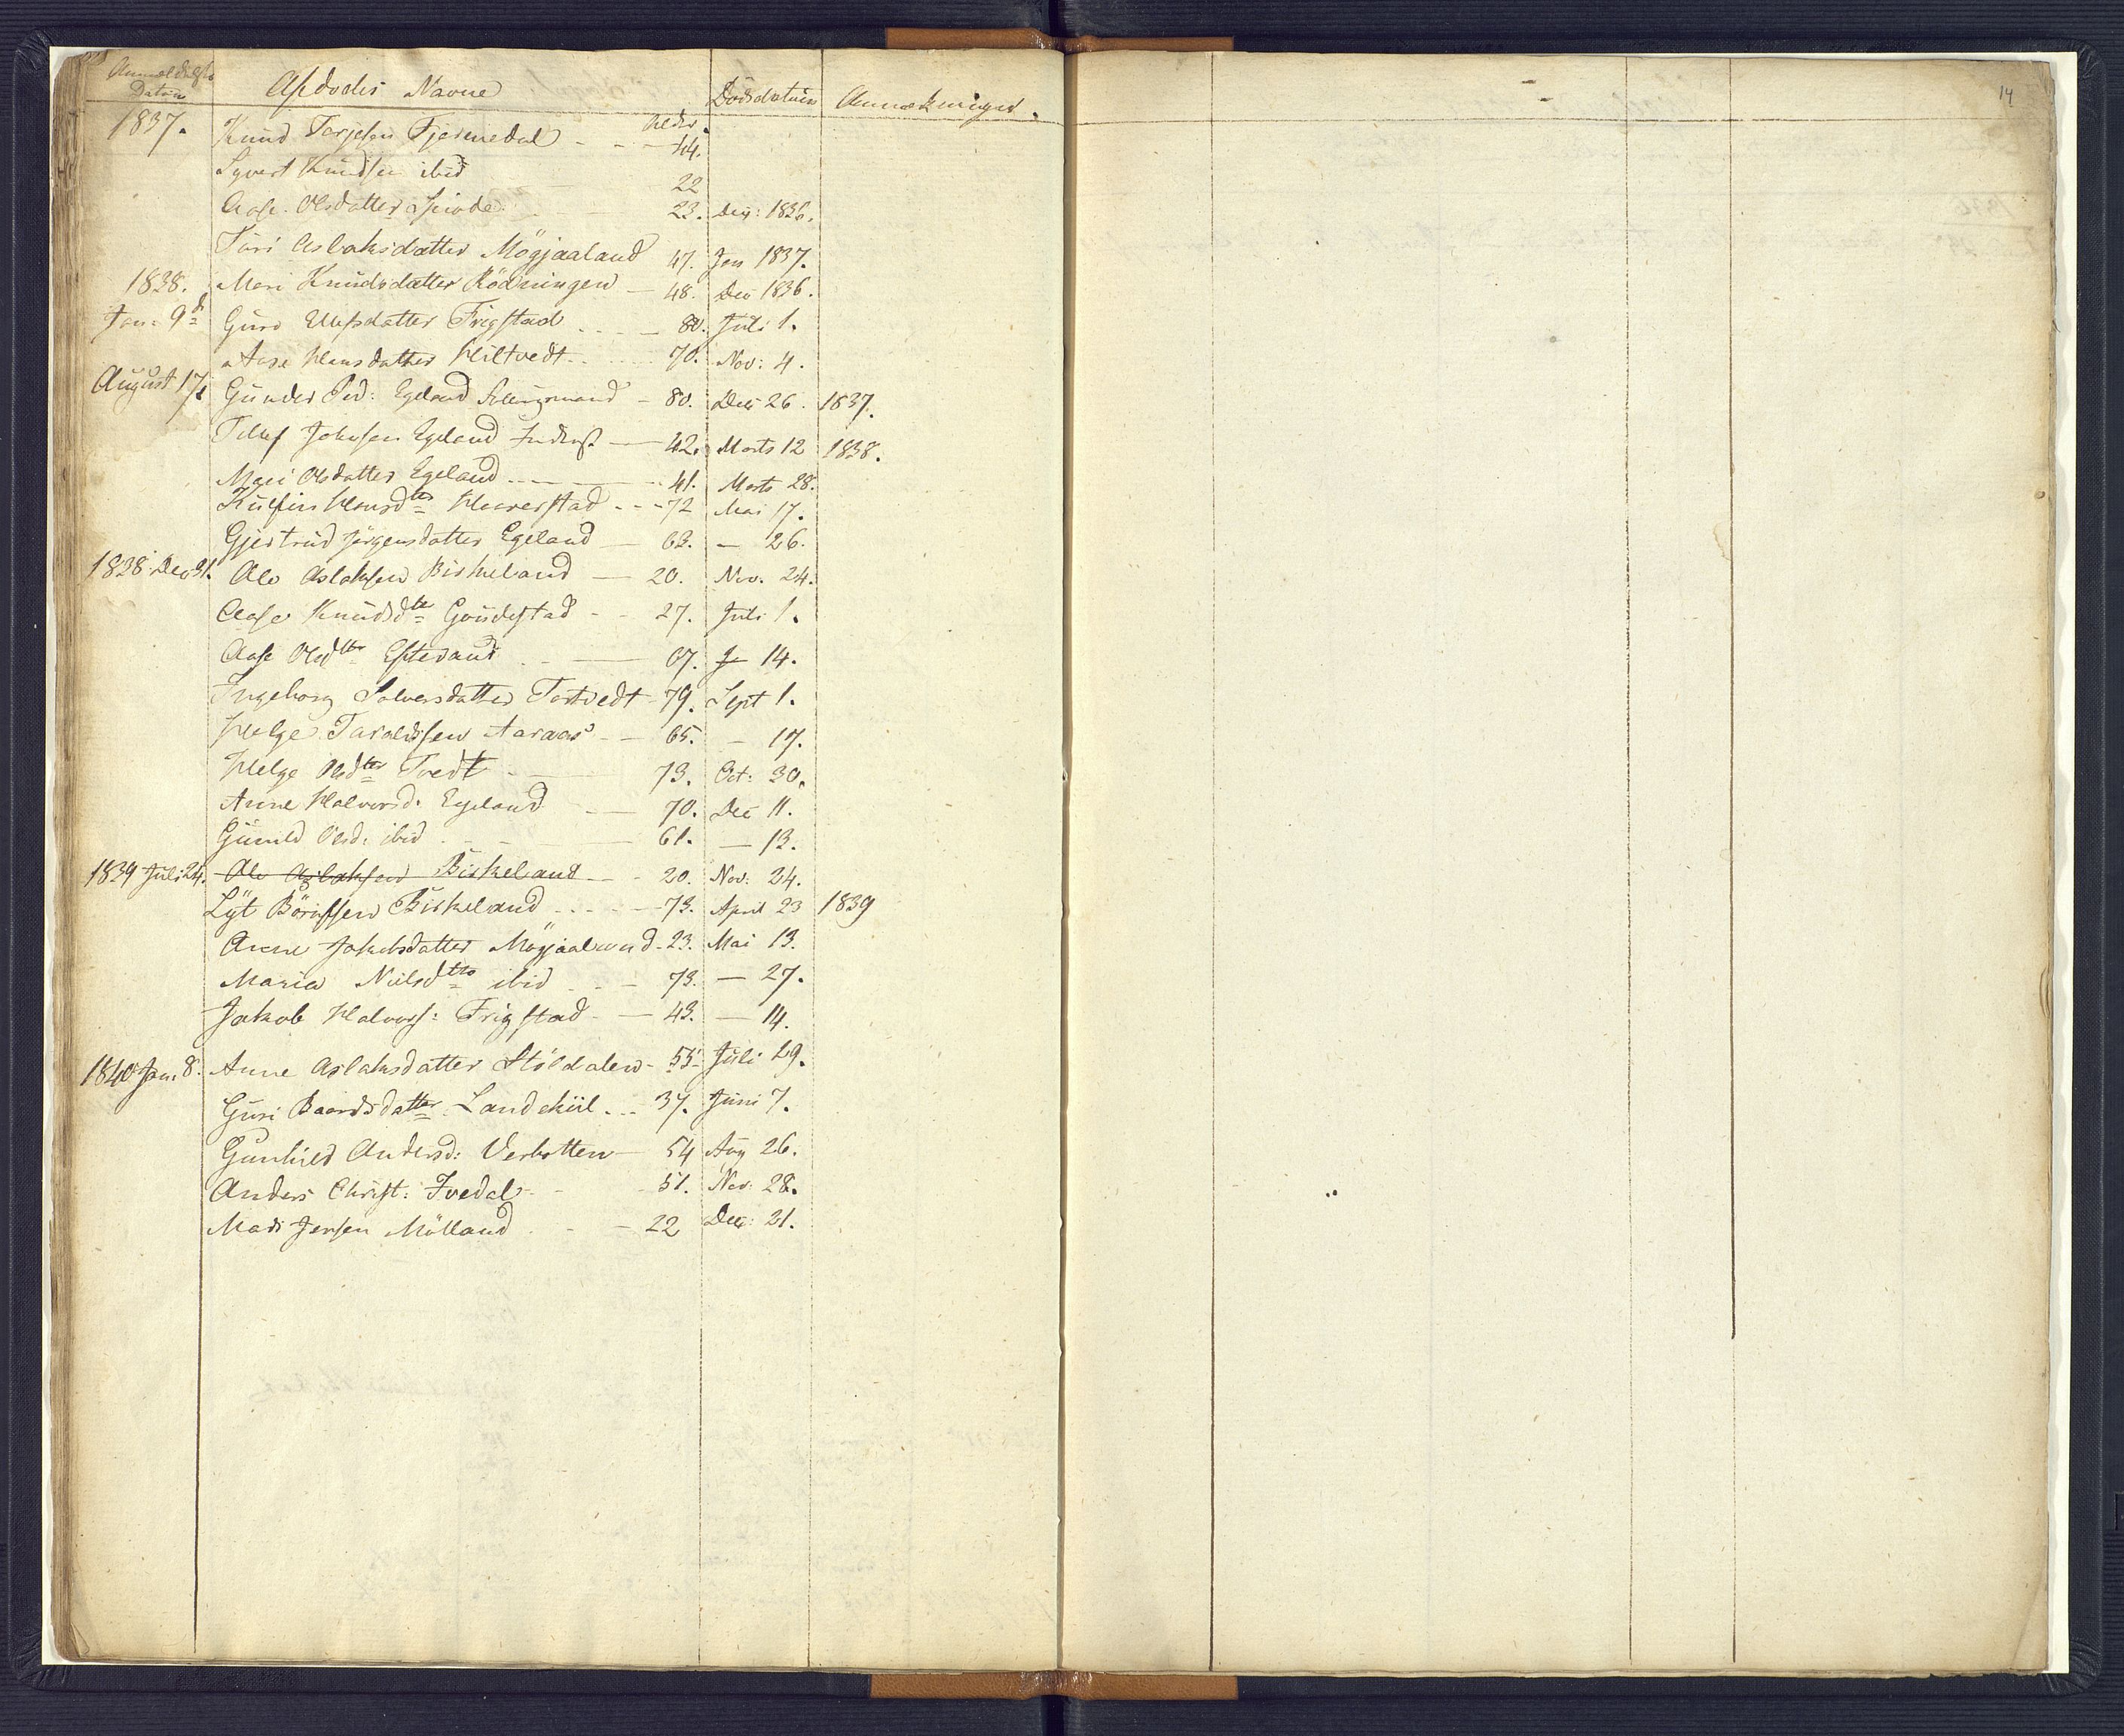 Anmeldelses Datum Afdødes Navne Alder. Dødsdatum Anmærkninger.
1837. Knud Tarjesen Tjernedal - - - 44.
Syvert Knudsen ibid 22
Aase Olsdatter - 23. Dec: 1836.
Turi Aslaksdatter Mögjaaland 47. Jan 1837.
1838. Mari Knudsdatter Rödningen - 48. Dec 1836.
Jan: 9d Guro Ellefsdatter Frigstad - 80. Juli 1.
Aase Hansdatter Hiltvedt - 70. Nov: 4.
August 17 Gunder Ped: Egeland - 80. Dec 26. 1837.
Tellef Johnsen Egeland Inderst - 42. Marts 12 1838.
Mari Olsdatter Egeland - 41. Marts 28.
Hansdter Haverstad - - - 72 Mai 17.
Gjertrud Jörgensdatter Egeland - 63. - 26.
1838 Dec 31. Ole Aslaksen Birkeland - 20. Nov. 24.
Aase Knudsdter - - 27. Juli 1.
Aase Olsdtter - 67. 14.
Ingeborg Solversdatter Tortvedt - 79. Sept 1.
Helge Taraldsen Aaraas - - 65. - 17.
Helge Olsdter Tvedt - 73. Oct: 30.
Anne Halvorsd: Egeland - 70. Dec 11.
Gunild Olsd: ibid - 61. - 13.
1839 Juli 24. Ole Aslaksen Birkeland - - 20. Nov: 24.
Lÿt Börufsen Birkeland - - - 73. April 23 1839
Anne Jakobsdatter Mögjaaland - 23. Mai 13.
Maria Nielsdtter ibid - - 73. - 27.
Jakob Halvors: Frigstad - - 43. - 14.
1840 Jan. 8. Anne Aslaksdatter Stöldalen - 55 - Juli 29.
Guri Baardsdatter Landekiil - - 37. Juni 7.
Gunhild Andersd: Verbotten - 54 Aug 26.
Anders Christ: Ivedal - - 51. Nov. 28.
Mads Jensen Mölland - - 22 Dec: 21.
14